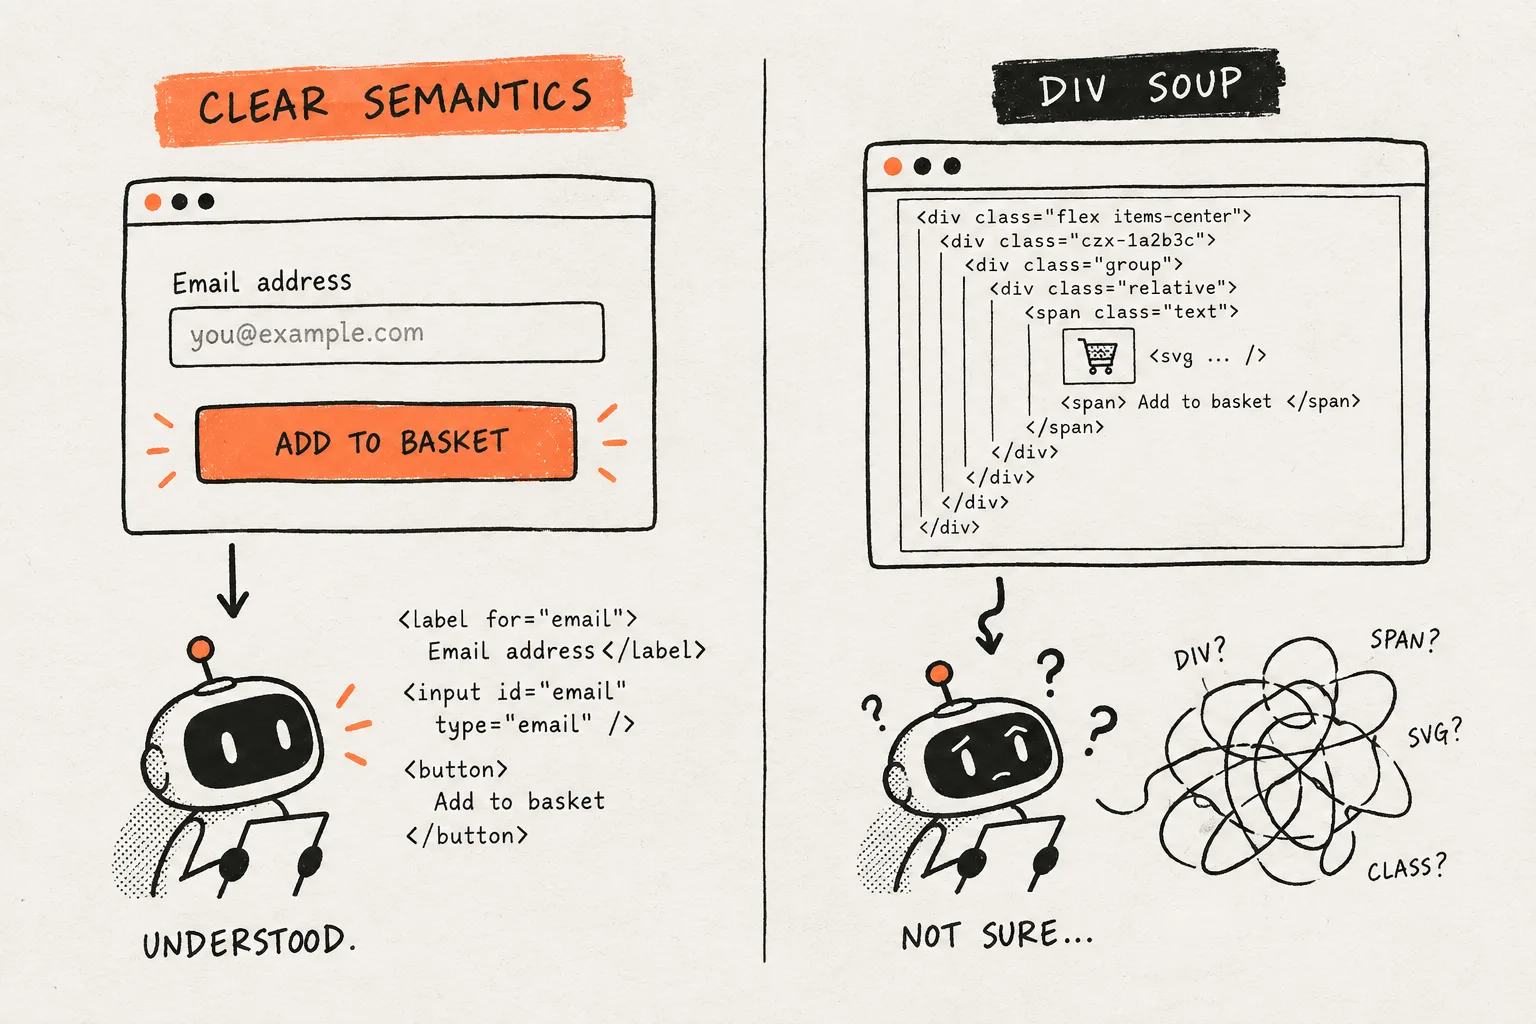 CLEAR SEMANTICS
Email address
you@example.com
ADD TO BASKET
<label for="email">
Email address</label>
<input id="email"
type="email" />
<button>
Add to basket
</button>
UNDERSTOOD.
DIV SOUP
<div class="flex items-center">
<div class="czx-1a2b3c">
<div class="group">
<div class="relative">
<span class="text">
<svg ... />
<span> Add to basket </span>
</span>
</div>
</div>
</div>
</div>
?
?
?
DIV?
SPAN?
SVG?
CLASS?
NOT SURE...